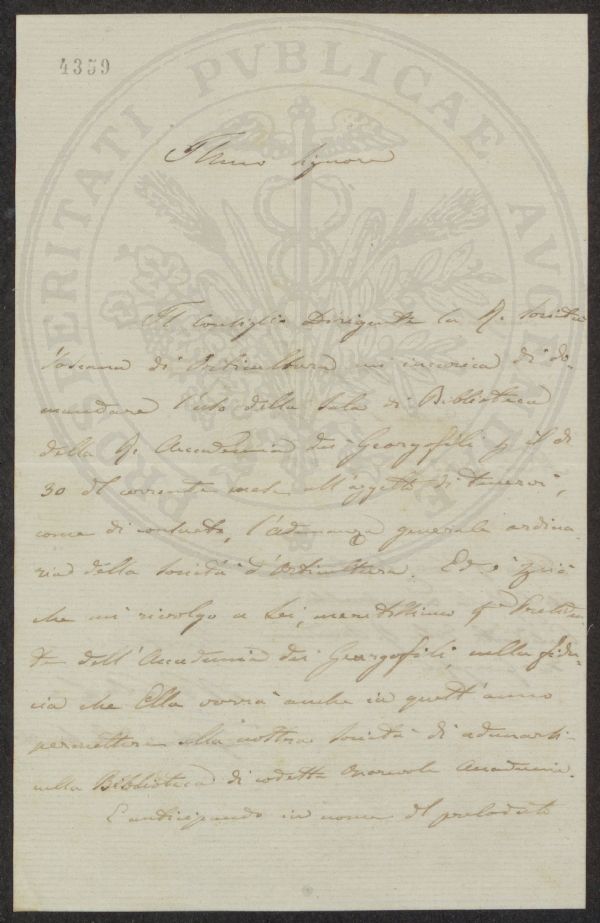 4359
PROSPERITATI PVBLICAE AVGENDAE
Illmo Signore
Il Consiglio Dirigente la R. Società
Toscana di Orticultura mi incarica di do-
mandare l'uso della Sala di Biblioteca
della R. Accademia dei Georgofili p il dì
30 del corrente mese all'oggetto di tenervi,
come di consueto, l'adunanza generale ordina-
ria della Società d'Orticultura. Ed è perciò
che mi rivolgo a Lei, meritissimo Sig.re Presiden-
te dell'Accademia dei Georgofili, nella fidu-
cia che Ella vorrà anche in quest'anno
permettere alla nostra Società di adunarsi
nella Biblioteca di codesta onorevole Accademia.
E anticipando in nome del prelodato